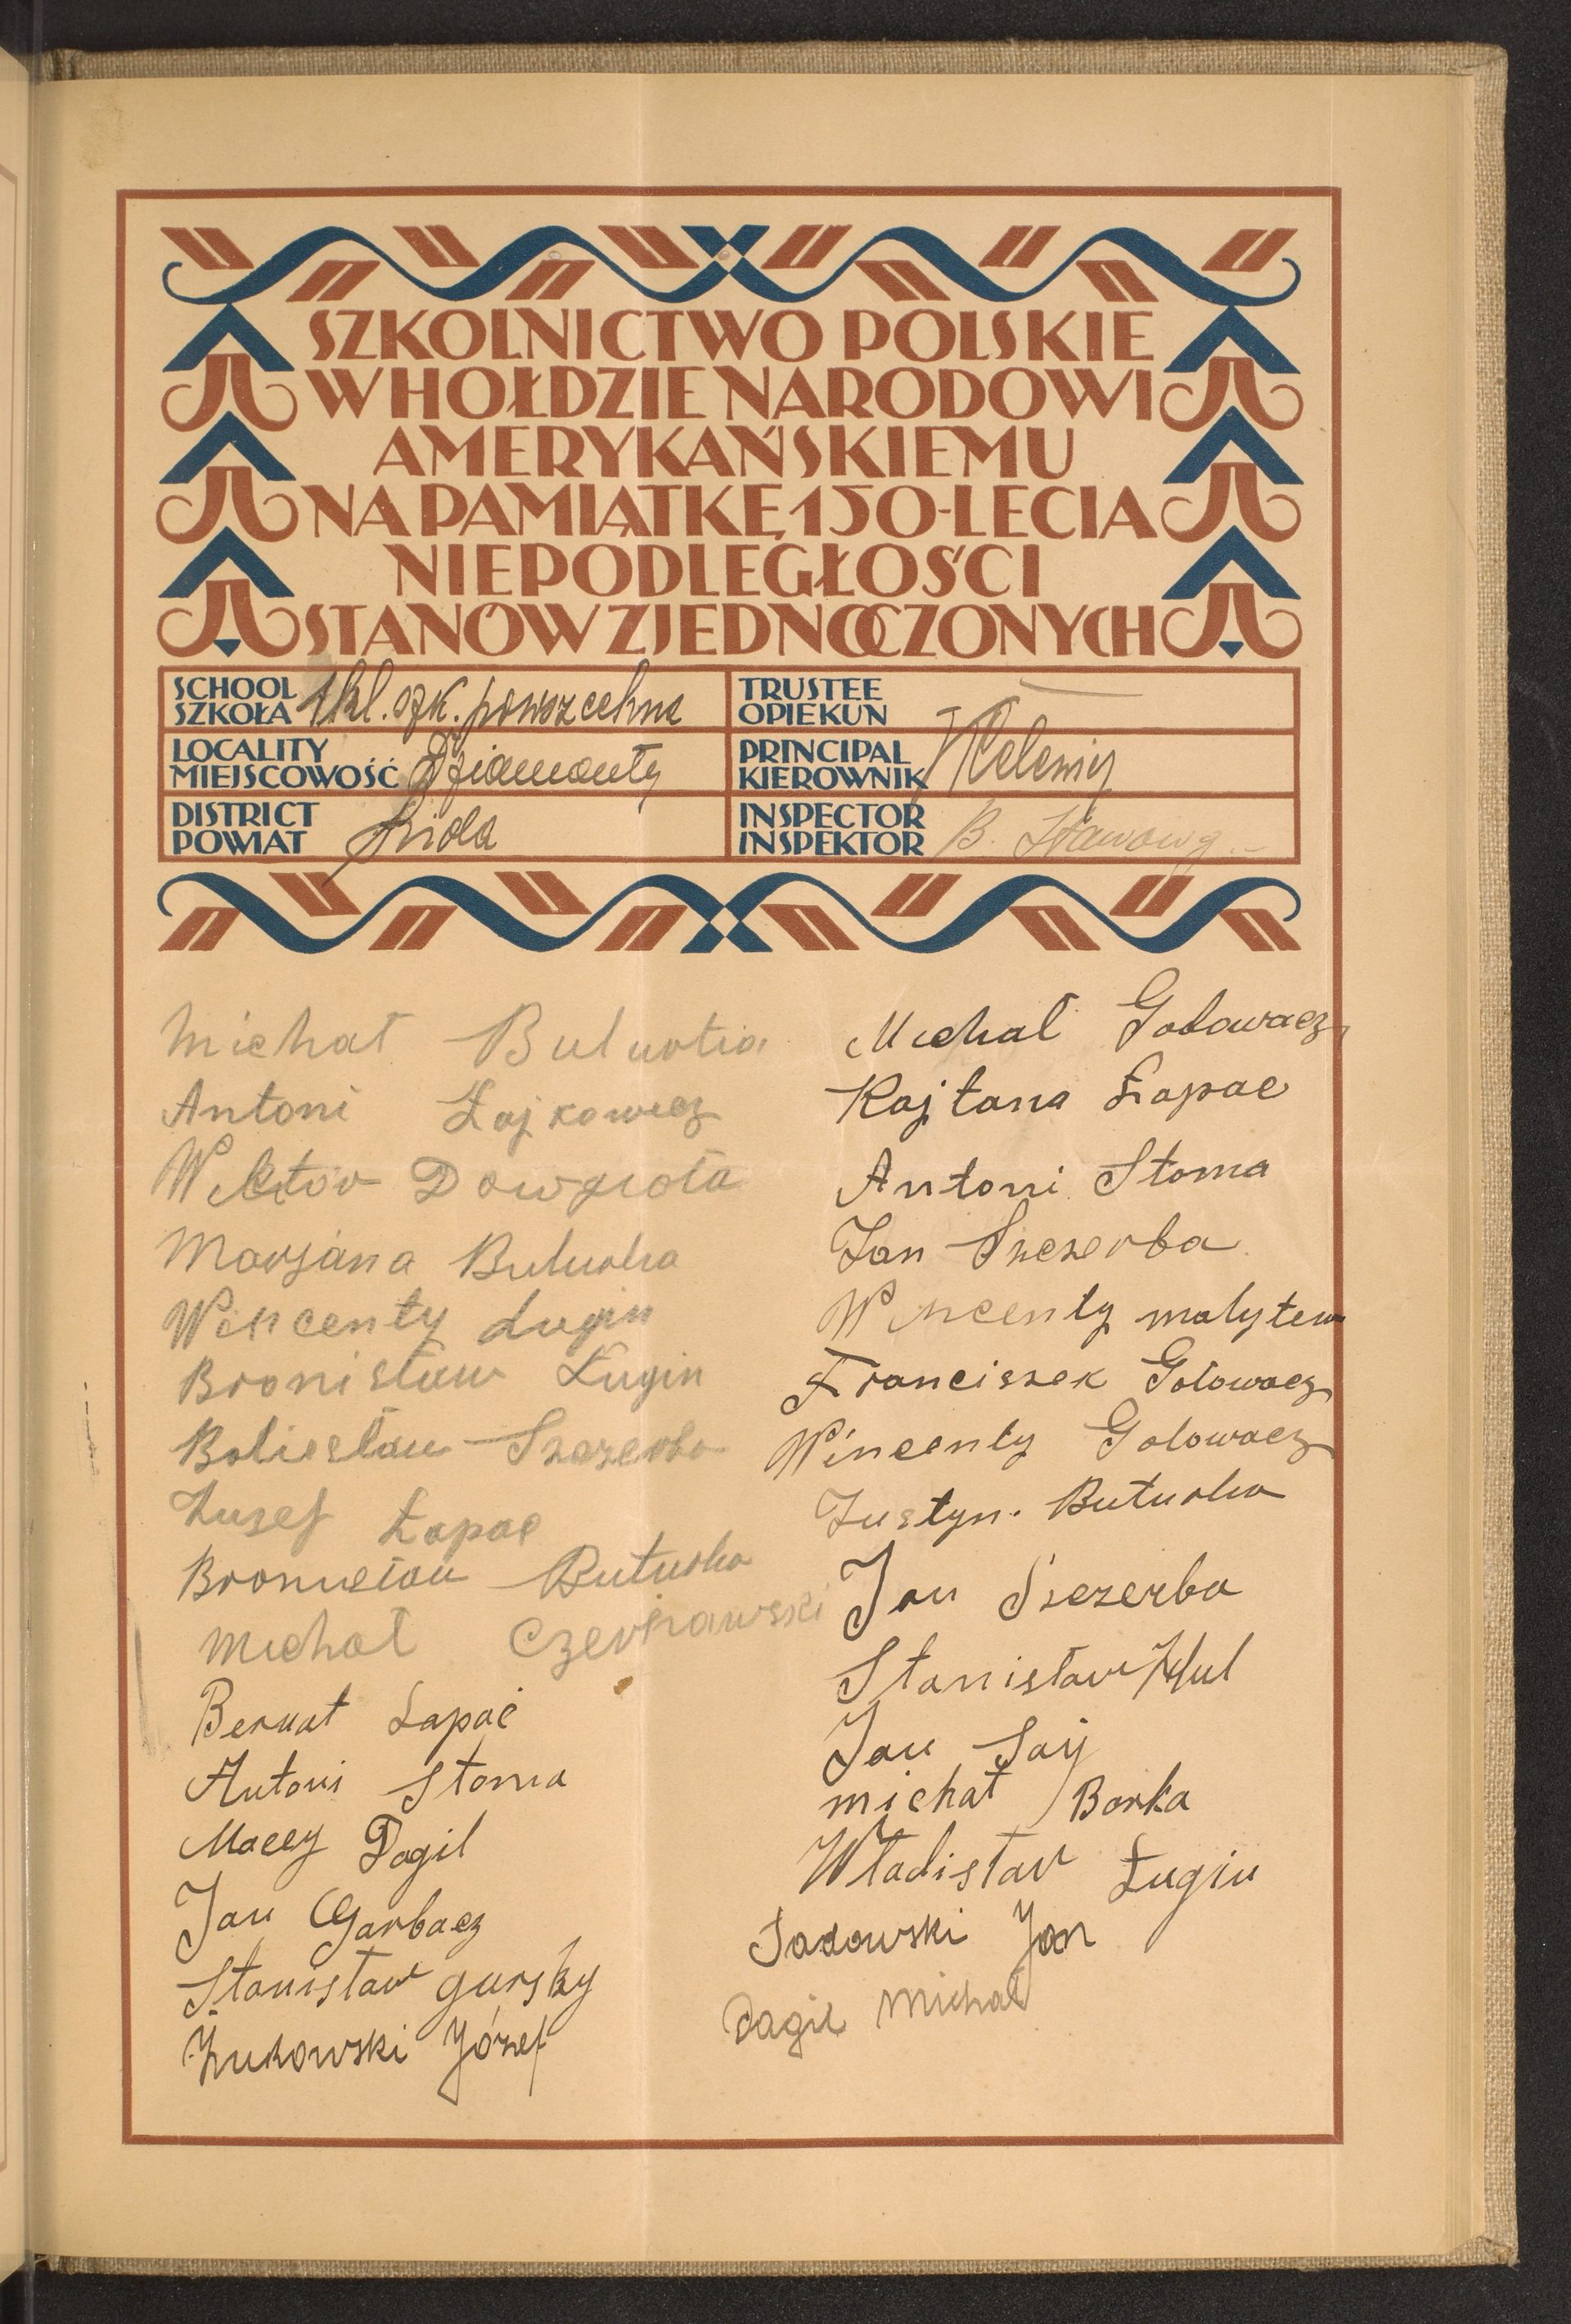 SZKOLNICTWO POLSKIE
W HOŁDZIE NARODOWI
AMERYKAŃSKIEMU
NA PAMIĄTKĘ 150-LECIA
NIEPODLEGŁOŚCI
STANÓW ZJEDNOCZONYCH
SCHOOL
SZKOŁA 1 kl. szk. powszechna
LOCALITY
MIEJSCOWOŚĆ Dziamonty
DISTRICT
POWIAT Lida
TRUSTEE
OPIEKUN
PRINCIPAL
KIEROWNIK
INSPECTOR
INSPEKTOR B.
Michał
Antoni Łajkowicz
Dowgioła
Marjana Buturla
Wincenty Lugin
Bronisław Ługin
Boliesław Szczerba
Juzef Łapac
Bronisław Buturla
Michał Czerniawski
Bernat Łapać
Antoni Stoma
Maciej Dagil
Jan Garbacz
Stanisław gursky
Żukowski Józef
Michał Gołowacz
Kajtana Łapac
Antoni Stoma
Jan Szczerba
Wincenty
Franciszek Gołowacz
Wincenty Gołowacz
Justyn. Buturla
Jan Szczerba
Stanisław Hul
Jan Saj
michał Borka
Władisław Ługin
Sadowski Jan
Dagil Michał